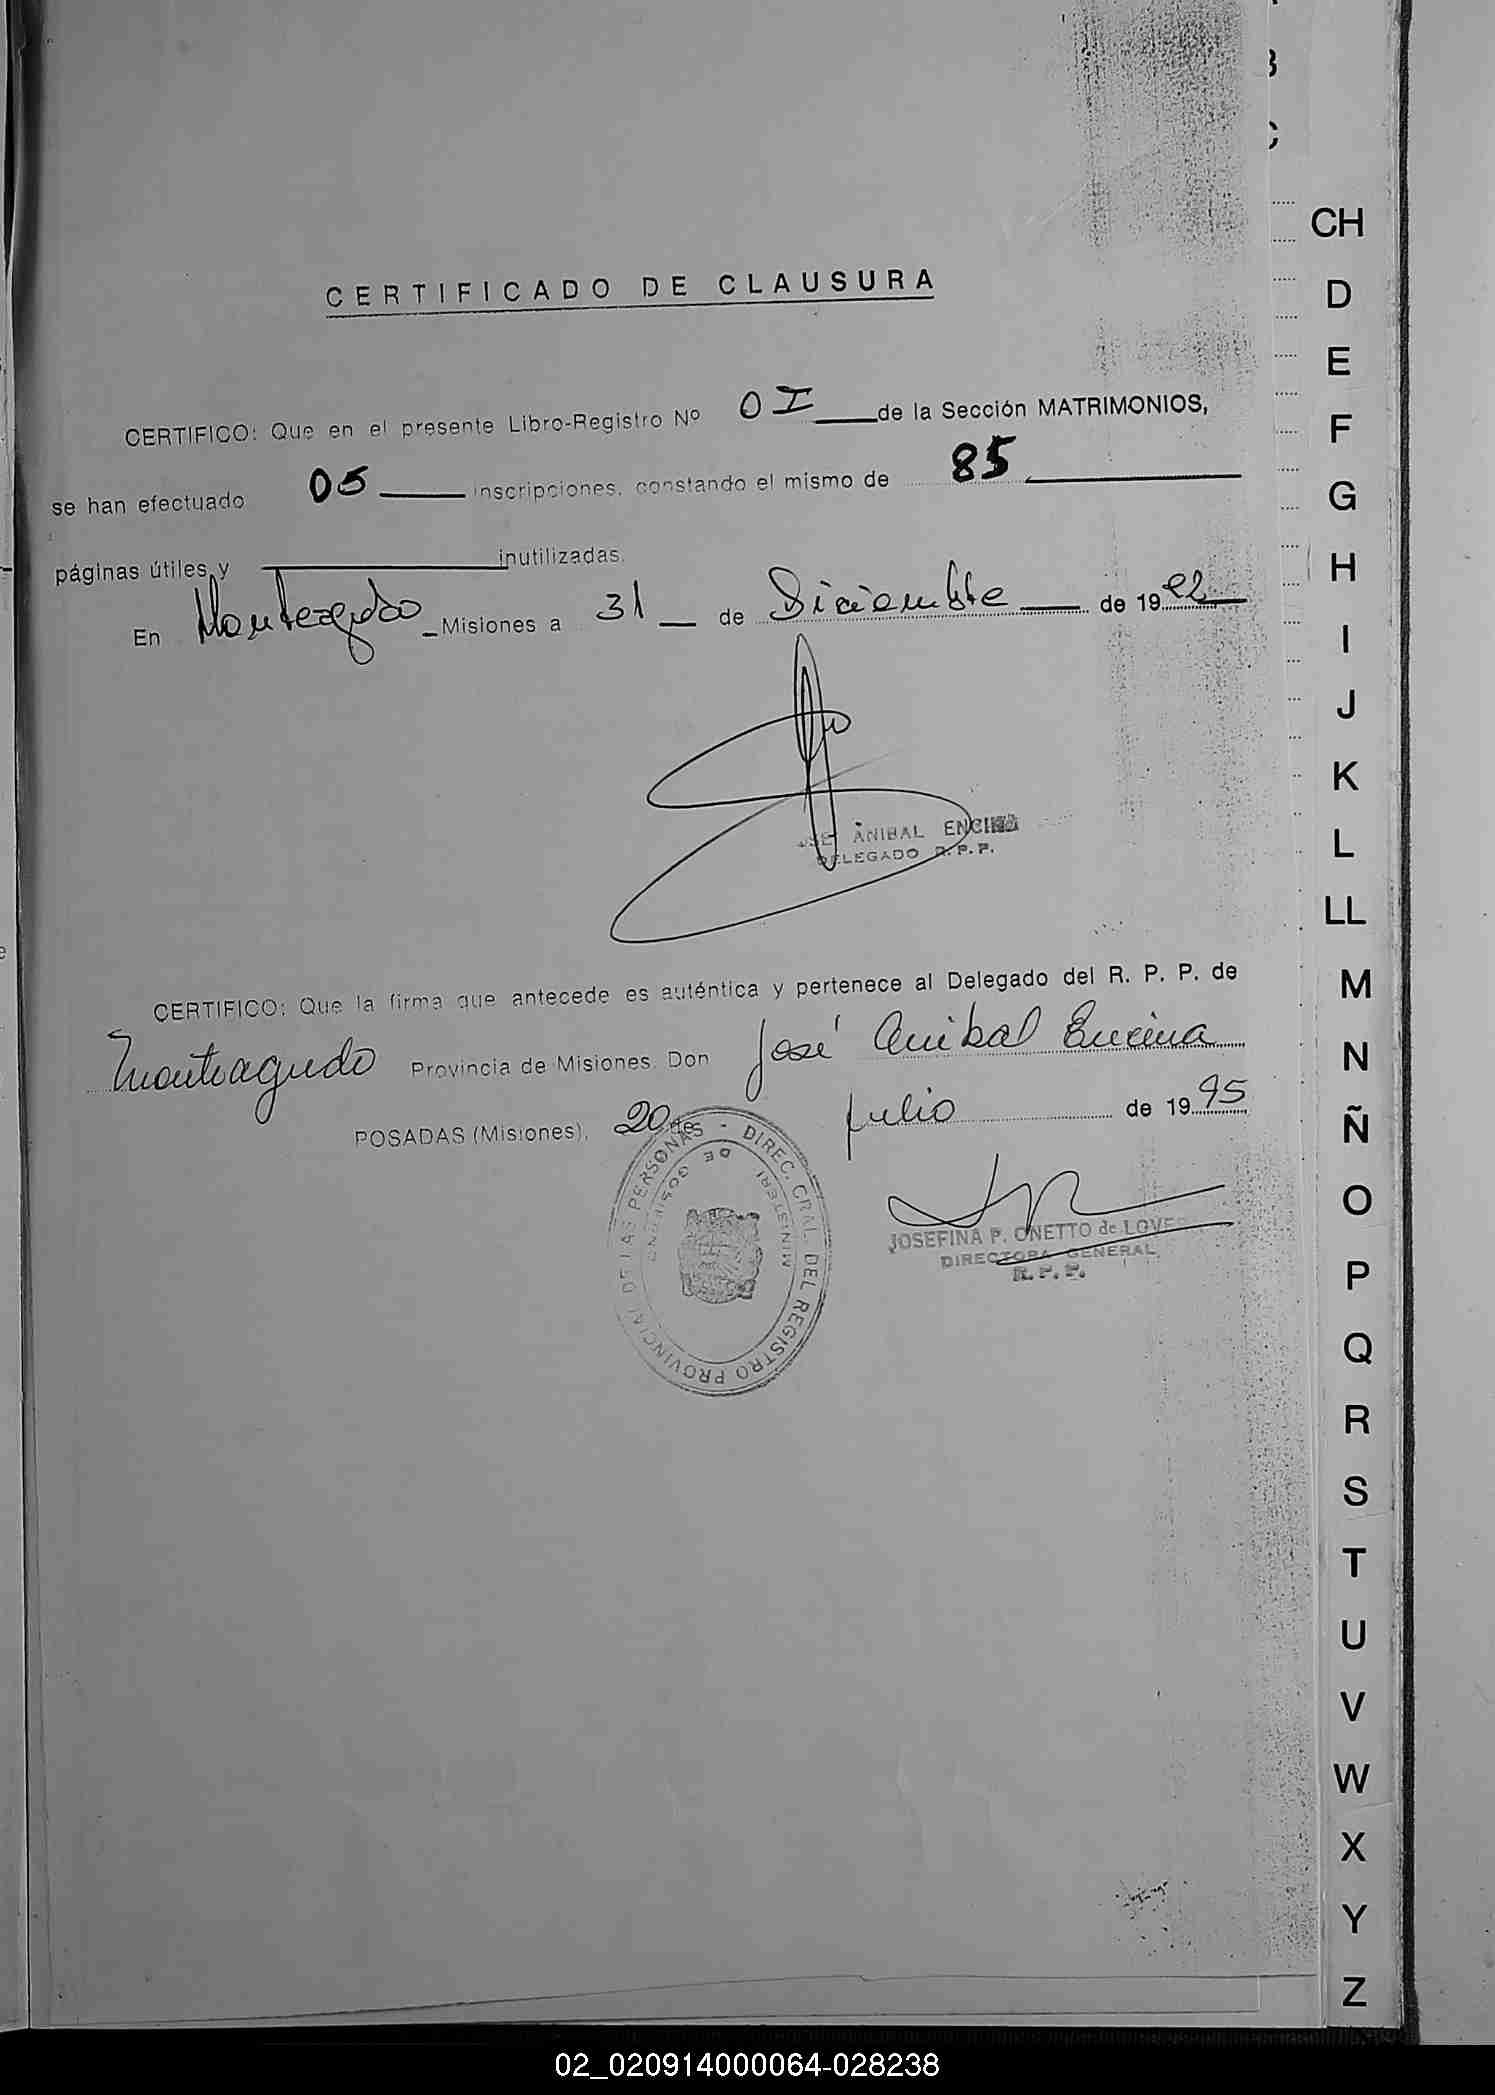 B
C
CERTIFICADO DE CLAUSURA
CERTIFICO: Que en el presente Libro-Registro Nº 0I de la Sección MATRIMONIOS,
se han efectuado 05 inscripciones, constando el mismo de 85
páginas útiles y inutilizadas.
En Monteagudo Misiones a 31 de Diciembre de 1992
JOSE ANIBAL ENCINA
DELEGADO R.P.P.
CERTIFICO: Que la firma que antecede es auténtica y pertenece al Delegado del R. P. P. de
Monteagudo Provincia de Misiones. Don José Anibal Encina
POSADAS (Misiones), 20 de julio de 1995
DIREC. GRAL. DEL REGISTRO PROVINCIAL DE LAS PERSONAS -
MINISTERI DE GOBIERNO
JOSEFINA P. ONETTO de LOVE
DIRECTORA GENERAL
R.P.P.
CH
D
E
F
G
H
I
J
K
L
LL
M
N
Ñ
O
P
Q
R
S
T
U
V
W
X
Y
Z
02_020914000064-028238